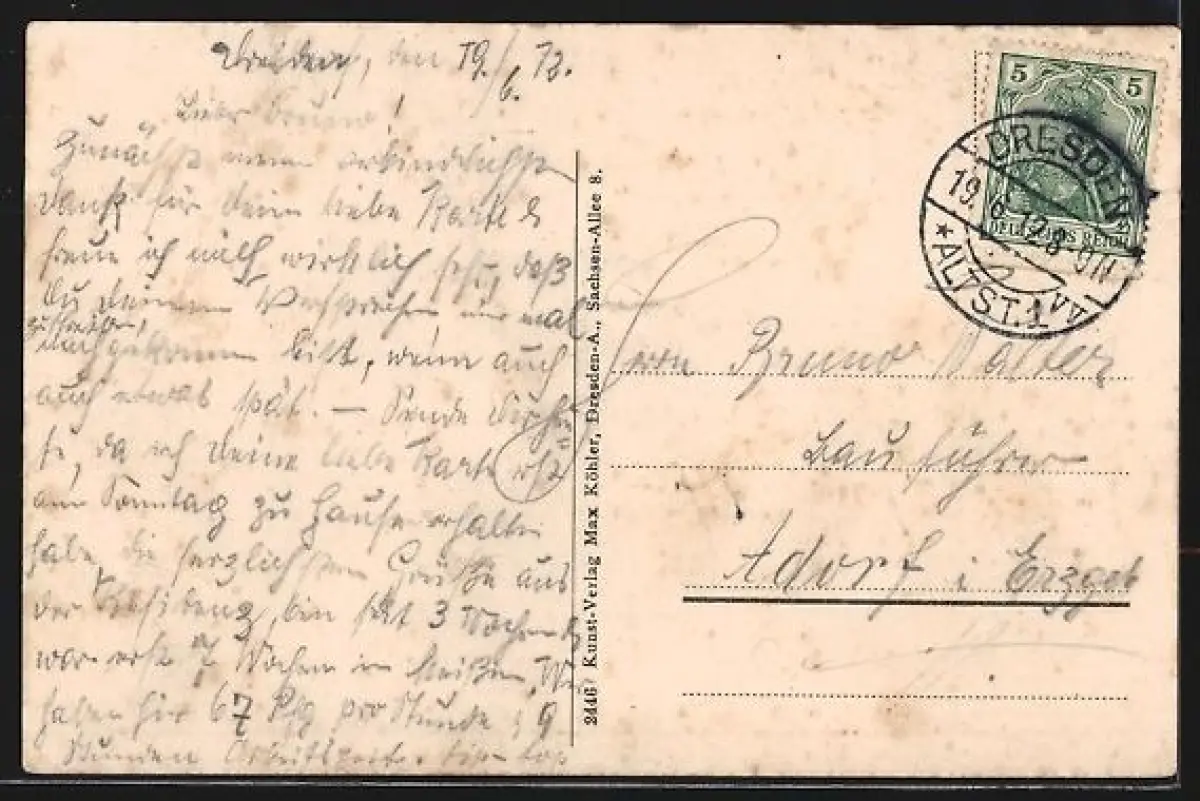 Dresden, den 19./6. 12.
Lieber Bruno!
Zunächst meinen verbindlichsten
Dank für Deine liebe Karte &
freue ich mich wirklich sehr, daß
Du Deinem Versprechen mir mal
zu schreiben,
nachgekommen bist, wenn auch
auch etwas spät. — Sende Dir heu=
te, da ich Deine liebe Karte erst
am Sonntag zu Hause erhalten
habe, die herzlichsten Grüße aus
der Residenz, bin seit 3 Wochen &
war erst 7 Wochen in Meißen, Wir
haben hier 67 Pfg pro Stunde & 9
Stunden Arbeitszeit.
2446 Kunst-Verlag Max Köhler, Dresden-A., Sachsen-Allee 8.
5 5
DEUTSCHES REICH
DRESDEN
19. 6. 12. 8-9 N
* ALTST. 1 *
Herrn Bruno
Bauführer
Adorf i. Erzgeb